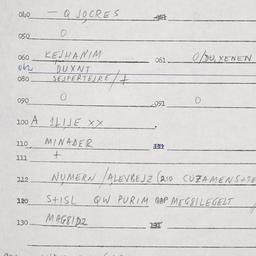 040 — Q JOCRES
050 O
060 KEJHANIM 061 O/DU, XENEN
062 DUXNT
080 SEJPERTEJRE/+
090 O 091 O
100 A 1LIJE XX
110 MINADER
111 +
112 NUMERN /ALEVBEJZ (210 CUZAMENS+TE
120 S+ISL QW PURIM GAP MEGBILEGELT
130 MAGBIDZ